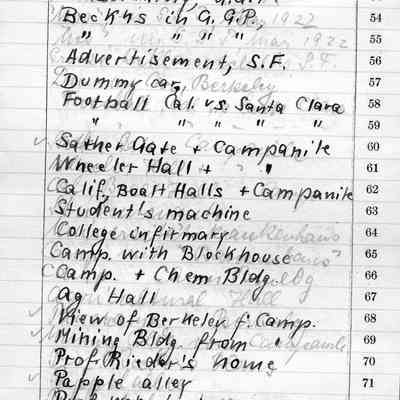 Beckhs in G. G. P., 54
" " " " 55
Advertisement, S.F. 56
Dummy car, Berkeley 57
Football Cal. vs. Santa Clara 58
" " " " " 59
Sather Gate + Campanile 60
Wheeler Hall + " 61
Calif, Boalt Halls + Campanile 62
Student's machine 63
College infirmary 64
Camp. with Blockhouse 65
Camp. + Chem Bldg. 66
Ag Hall 67
View of Berkeley f. Camp. 68
Mining Bldg. from " 69
Prof Rieder's home 70
Papple alley 71